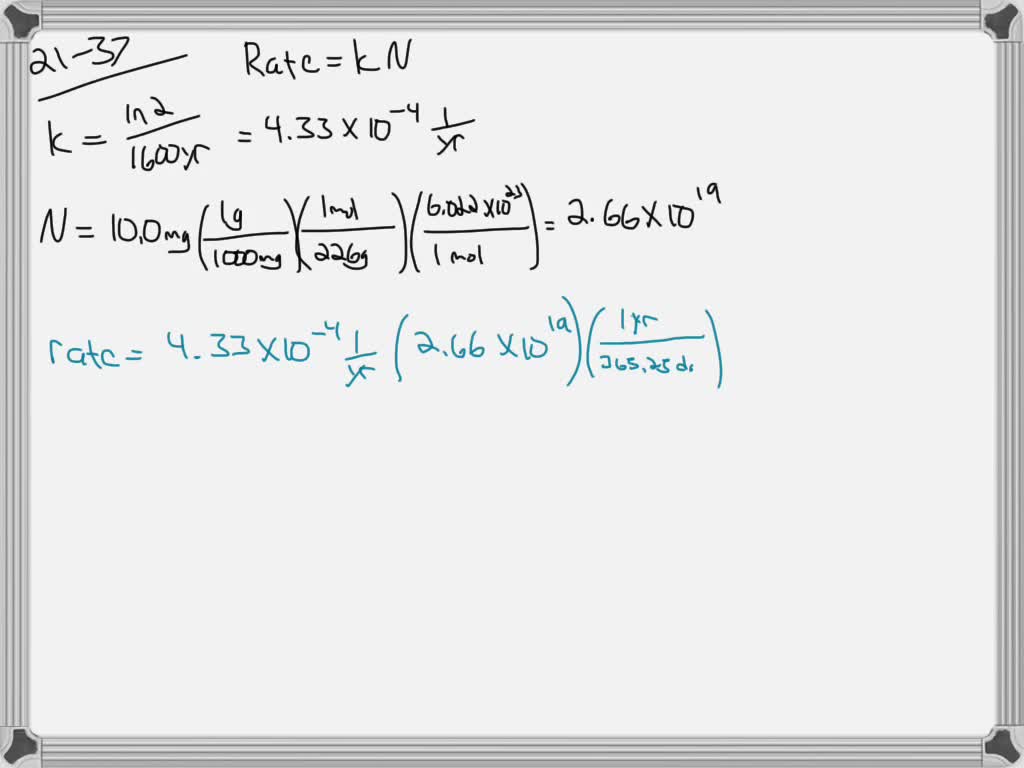 21-37 Rate = kN
k = ln 2 / 1600 yr = 4.33 × 10^-4 1/yr
N = 10.0 mg (1g / 1000 mg)(1 mol / 226g)(6.022 × 10^23 / 1 mol) = 2.66 × 10^19
rate = 4.33 × 10^-4 1/yr (2.66 × 10^19)(1 yr / 365.25 d.)